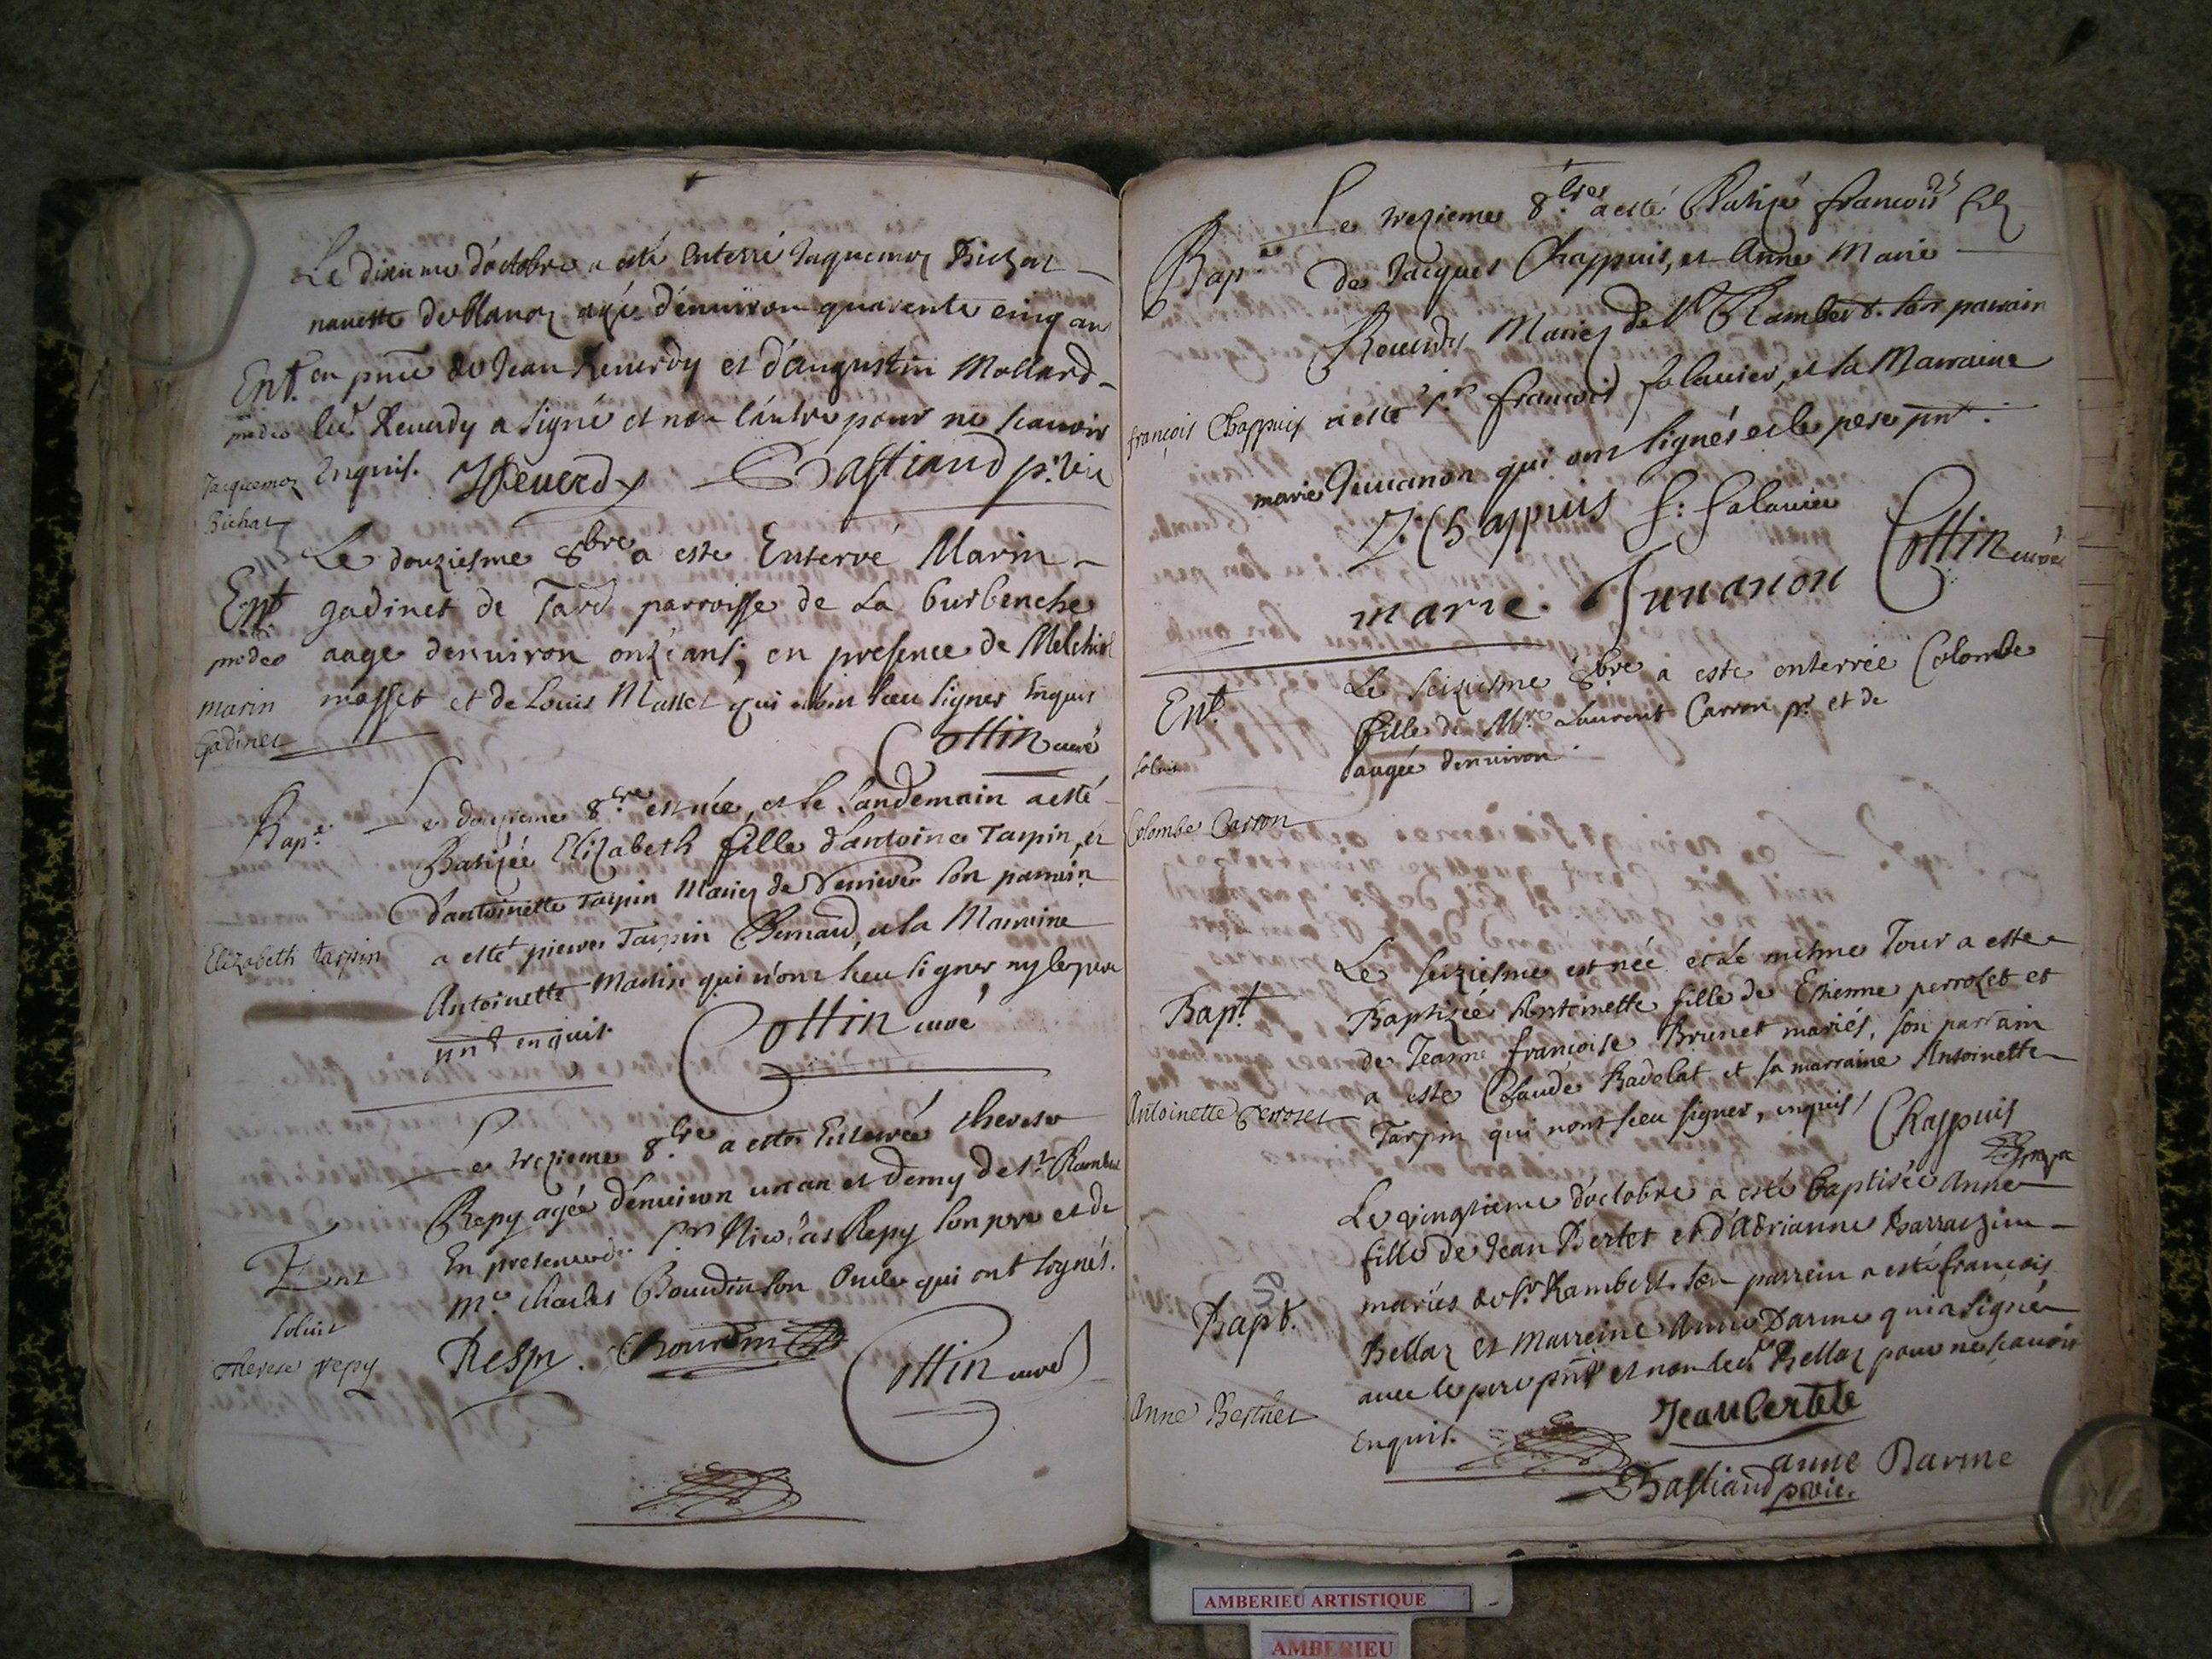 Le dixieme d'octobre a esté Enterré Jaquemoz Bichat
navette de blanoz agé d'enuiron quarente cinq ans
Ent. en pnce de Jean Reuerdy et d'augustin Mollard
pro deo led. Reuerdy a signé et non l'autre pour ne scauoir
Enquis. JReuerdy Bastiand p. vic
Jacquemoz
Bichat
Le douziesme 8bre a este Enterré Marin
Ent gadinet de Tard parroisse de La burbenche
pro deo aage denuiron onze ans, en presence de Melchiol
marin masset et de Louis Masset qui nont sceu signer Enquis
Gadinet
Cottin curé
Bap.e Le douzieme 8.bre est née, et le landemain a esté
Batisée Elizabeth fille d'antoine Tarpin, et
d'antoinette Tarpin Mariez de son parrain
Elizabeth tarpin a esté pierre Tarpin Chenaud, et la Marraine
Antoinette qui n'ont sceu signer ny le pere
pnt enquit. Cottin curé
Le trezieme 8.bre a este Enterrée therese
Repy agée d'enuiron un an et demy de St Rambert
Ent En presence de Sr Nicolas Repy son pere et de
Solvit Me. charles Bourdin son Oncle qui ont signés.
therese repy Respy. Bourdin Cottin curé
Le trezieme 8.bre a esté Batizé francois fils
Bap.e de Jacques Chappuis, et Anne Marie
Reuerdy Mariez de St Rambert. son parrain
françois Chappuis a esté Sr. francois falauier, et la Marraine
marie Juuanon qui ont signés et le pere pnt.
J. Chappuis f: falauier
marie. Juuanon Cottin curé
Ent. Le seiziesme 8bre a este enterrée Colombe
fille de Mre Laurent Carron pr et de
Solvit aagée denuiron
Colombe Carron
Le seiziesme est née et Le mesme Jour a este
Bapt. Baptizée Antoinette fille de Etienne perrozet et
de Jeanne françoise Brunet mariés, son parrain
a este Claude Badolat et sa marraine Antoinette
Antoinette perrozet Tarpin qui nont sceu signer, enquis / Chappuis
Le vingtieme d'octobre a esté baptisée Anne
fille de Jean Bertet et d'Adrianne
mariés de St. Rambert. son parrein a esté françois
Bapt. Bellaz et Marreine Anne Darme qui a signée
auec le pere pnt et non led. Bellaz pour ne scauoir
Anne Berthet Enquis. Jean bertete
anne Darme
Bastiand p. vic.
AMBERIEU ARTISTIQUE
AMBERIEU